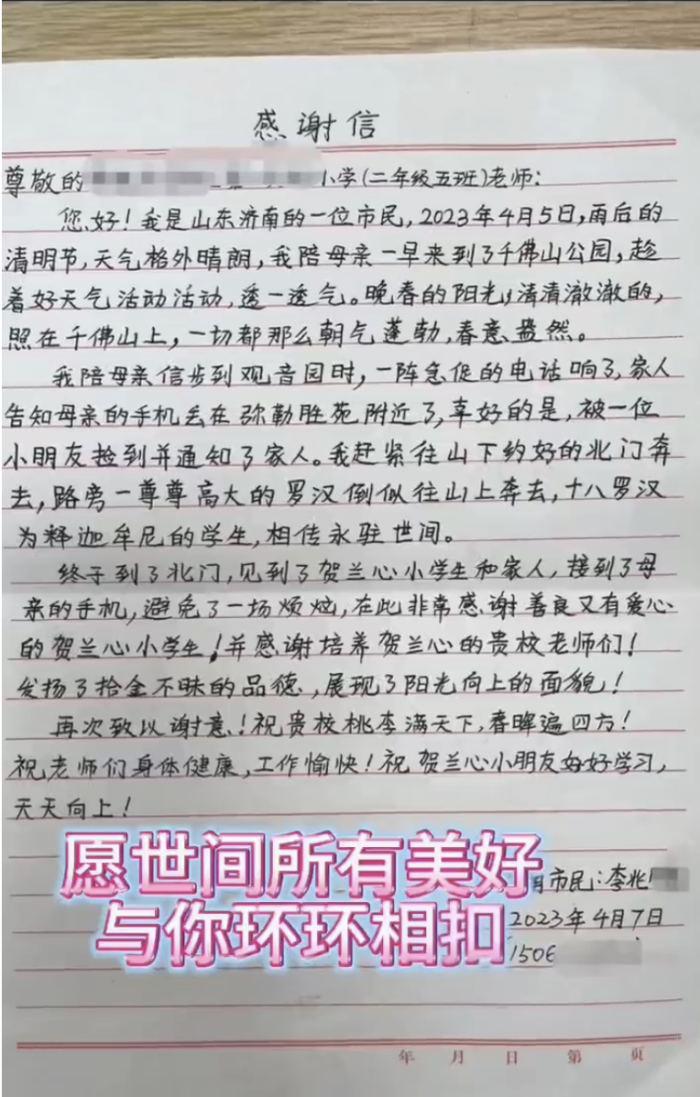 感谢信
尊敬的 小学(二年级五班)老师:
您好!我是山东济南的一位市民,2023年4月5日,雨后的
清明节,天气格外晴朗,我陪母亲一早来到了千佛山公园,趁
着好天气活动活动,透一透气。晚春的阳光,清清澈澈的,
照在千佛山上,一切都那么朝气蓬勃,春意盎然。
我陪母亲信步到观音园时,一阵急促的电话响了,家人
告知母亲的手机丢在弥勒胜苑附近了,幸好的是,被一位
小朋友捡到并通知了家人。我赶紧往山下约好的北门奔
去,路旁一尊尊高大的罗汉倒似往山上奔去,十八罗汉
为释迦牟尼的学生,相传永驻世间。
终于到了北门,见到了贺兰心小学生和家人,接到了母
亲的手机,避免了一场烦炫,在此非常感谢善良又有爱心
的贺兰心小学生!并感谢培养贺兰心的贵校老师们!
发扬了拾金不昧的品德,展现了阳光向上的面貌!
再次致以谢意!祝贵校桃李满天下,春晖遍四方!
祝老师们身体健康,工作愉快!祝贺兰心小朋友好好学习,
天天向上!
愿世间所有美好
与你环环相扣
市民:李兆
2023年4月7日
1506
年 月 日 第 页